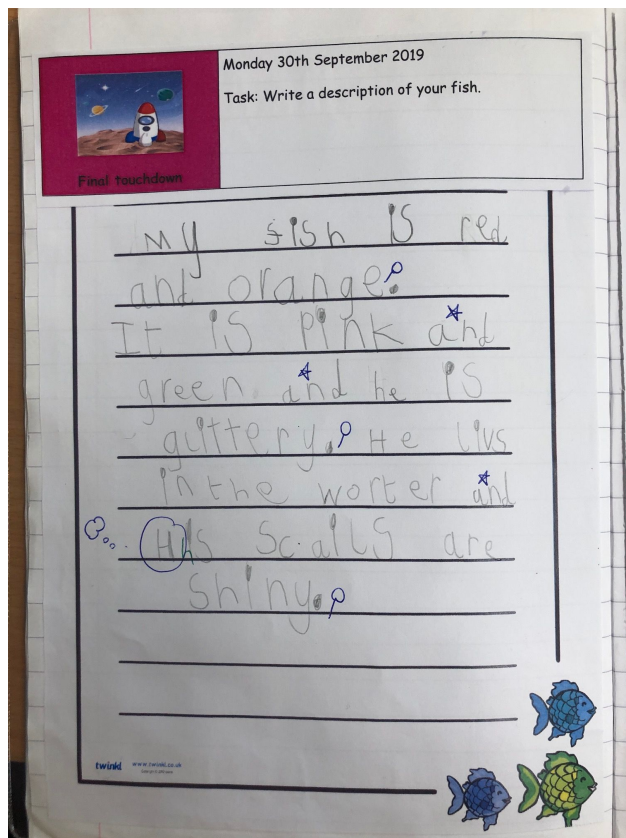 Monday 30th September 2019
Task: Write a description of your fish.
Final touchdown
My fish is red
and orange.
It is Pink and
green and he is
glittery. He livs
in the worter and
His scalls are
shiny.
twinkl www.twinkl.co.uk